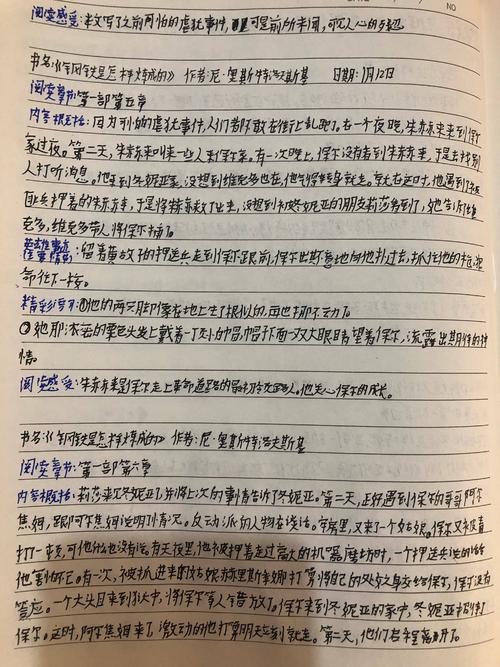 NO
阅读感受:本文写了之前可怕的虐犹事件,可是前所未闻,可人心的残忍
书名:《钢铁是怎样炼成的》 作者:尼·奥斯特洛夫斯基 日期:1月12日
阅读章节:第一部第五章
内容概括:因为可怕的虐犹事件,人们都不敢在街上乱跑了。在一个夜晚,朱赫来来到保尔
家过夜。第二天,朱赫来叫来一些人来保尔家。有一次晚上,保尔没有看到朱赫来,于是去找别
人打听消息。他来到冬妮亚家,没想到维克多也在,他气得转身就走。就在这时,他遇到了被
匪兵押着的朱赫来,于是将朱赫来救了出来,没想到被冬妮亚的朋友莉莎看到了,她告诉维
克多,维克多带人将保尔捕了。
英雄事迹 留着黄胡子的押送兵走到保尔跟前,保尔出其不意地向他扑过去,抓住他的枪,拼
命往下一按。
精彩句子:①他的两只脚像在地上生了根似的,再也挪不动了。
②她那浓密的栗色头发上戴着一丁小的帽,帽下面一双大眼睛望着保尔,流露出期待的神
情。
阅读感受:朱赫来是保尔走上革命道路的最初领路人。他关心保尔的成长。
书名:《钢铁是怎样炼成的》 作者:尼·奥斯特洛夫斯基
阅读章节:第一部第六章
内容概括:莉莎来冬妮亚了,并将上次的事情告诉了冬妮亚。第二天,正好遇到保尔的哥哥阿尔
焦姆,跟阿尔焦姆说明了情况。反动派的人物在谈话。牢房里,又来了一个姑娘。保尔又被毒
打一顿,可他什么也没有说。有天夜里,他被押着走过高大的机器磨坊时,一个押送兵说的话
他害怕死。有一次,被抓进来的姑娘赫里斯季娜打算将自己的处女身交给保尔,保尔没有
答应。一个大头目来到狱中,将保尔等人全普放了。保尔来到冬妮亚的家中,冬妮亚招待了
保尔。这时,阿尔焦姆来了,激动的他打算明天送别就走。第二天,他们启程离开了。